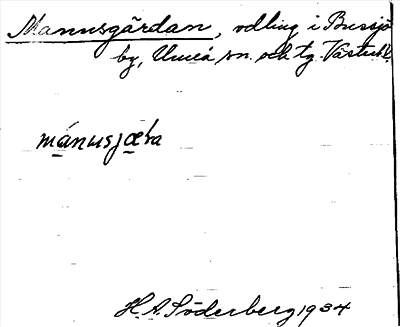 Mannusgärdan, odling i Bussjö
by, Umeå sn. och tg. Västerb.
mánusjæɫa
H. A. Söderberg 1934